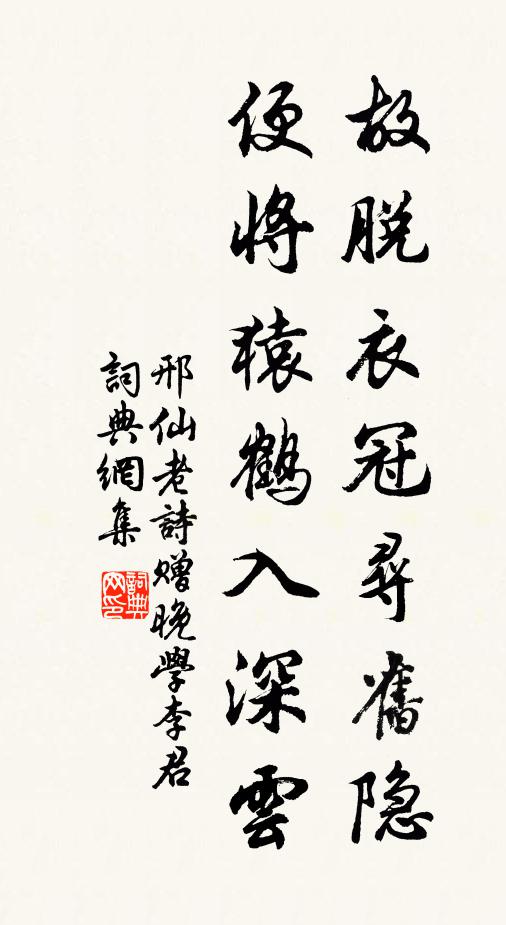 故脱衣冠尋舊隐
便將猿鶴入深雲
邢仙老詩赠晚學李君
詞典網集
詞典网印